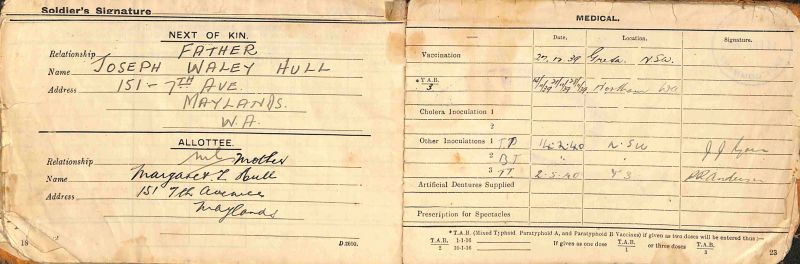 Soldier's Signature
NEXT OF KIN.
Relationship FATHER
Name JOSEPH WALEY HULL
Address 151 - 7TH AVE.
MAYLANDS.
W.A.
ALLOTTEE.
Relationship Mother
Name Margaret L Hull
Address 151 7th Avenue
Maylands
18
D.2692.
MEDICAL.
Date. Location. Signature.
Vaccination 27.12.39 Greta. N.S.W.
*T.A.B. 3 Northam WA
Cholera Inoculation 1
2
Other Inoculations 1 TP 14.2.40 N.S.W
2 BT "
3 TT 2-5-40
Artificial Dentures Supplied
Prescription for Spectacles
*T.A.B. (Mixed Typhoid Paratyphoid A, and Paratyphoid B Vaccines) if given as two doses will be entered thus :—
T.A.B. 2 1-1-16 10-1-16 If given as one dose T.A.B. 1 or three doses T.A.B. 3
23